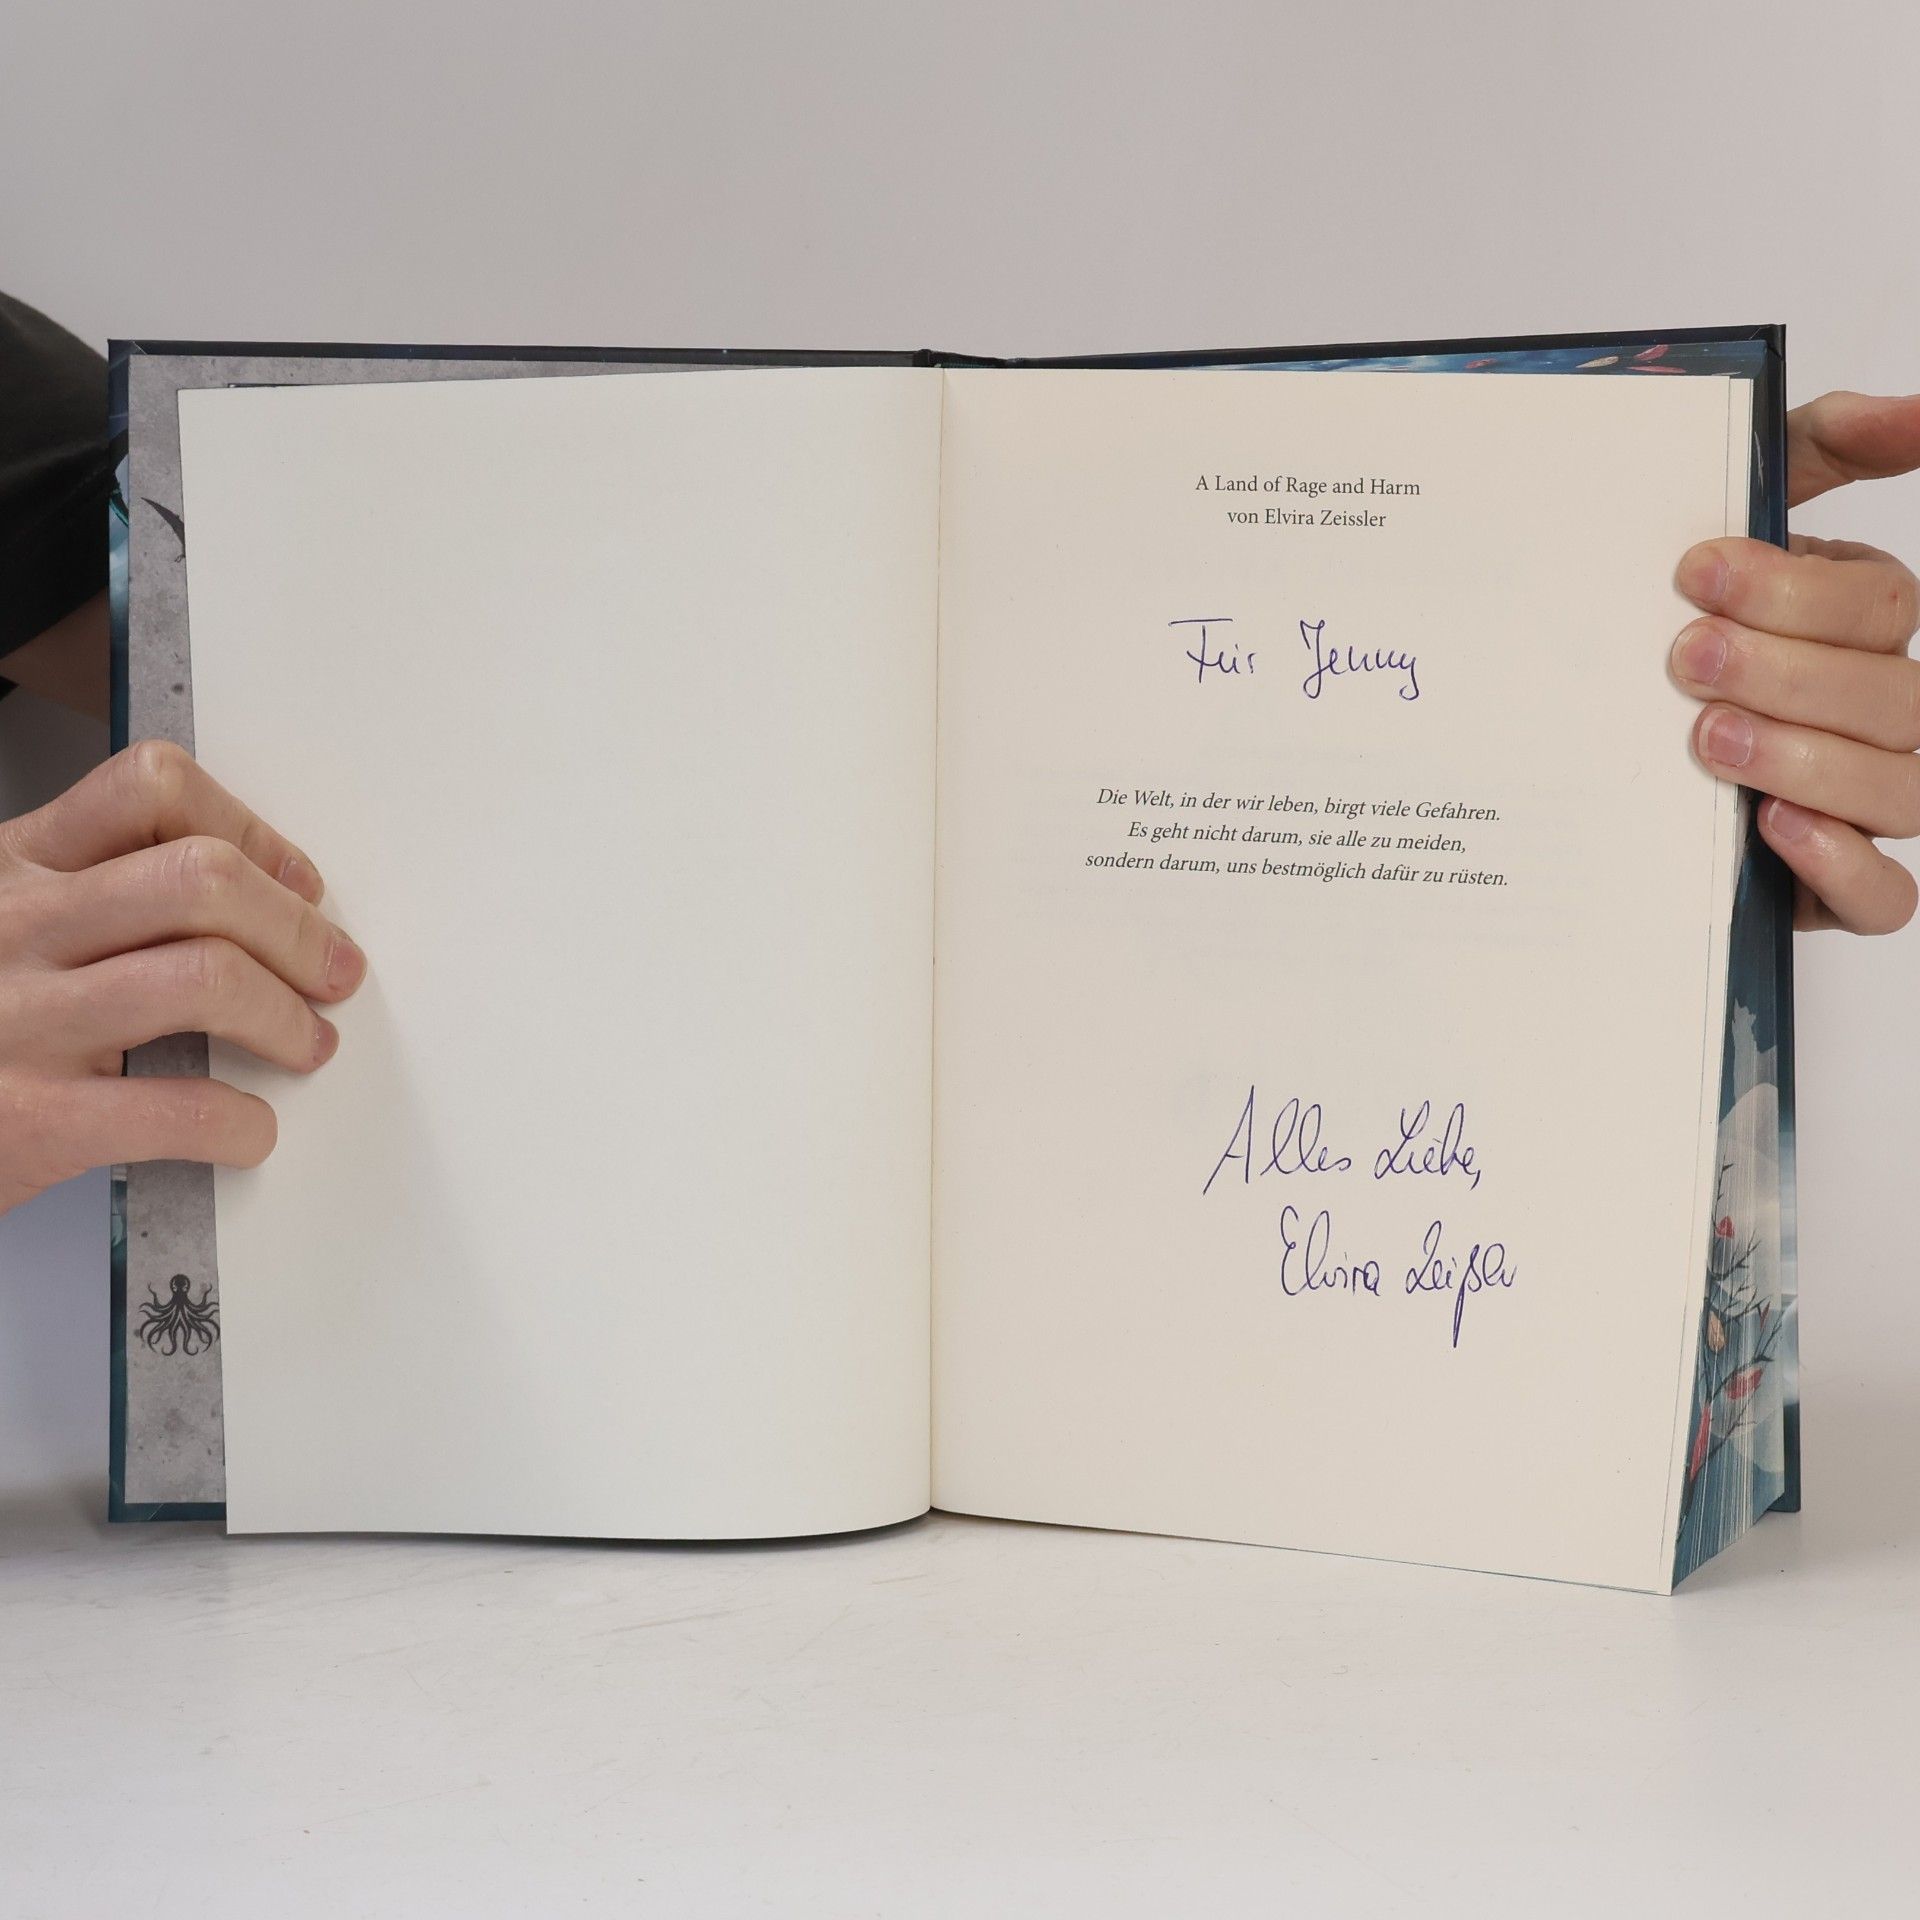 A Land of Rage and Harm
von Elvira Zeissler
Für Jenny
Die Welt, in der wir leben, birgt viele Gefahren.
Es geht nicht darum, sie alle zu meiden,
sondern darum, uns bestmöglich dafür zu rüsten.
Alles Liebe,
Elvira Zeißler